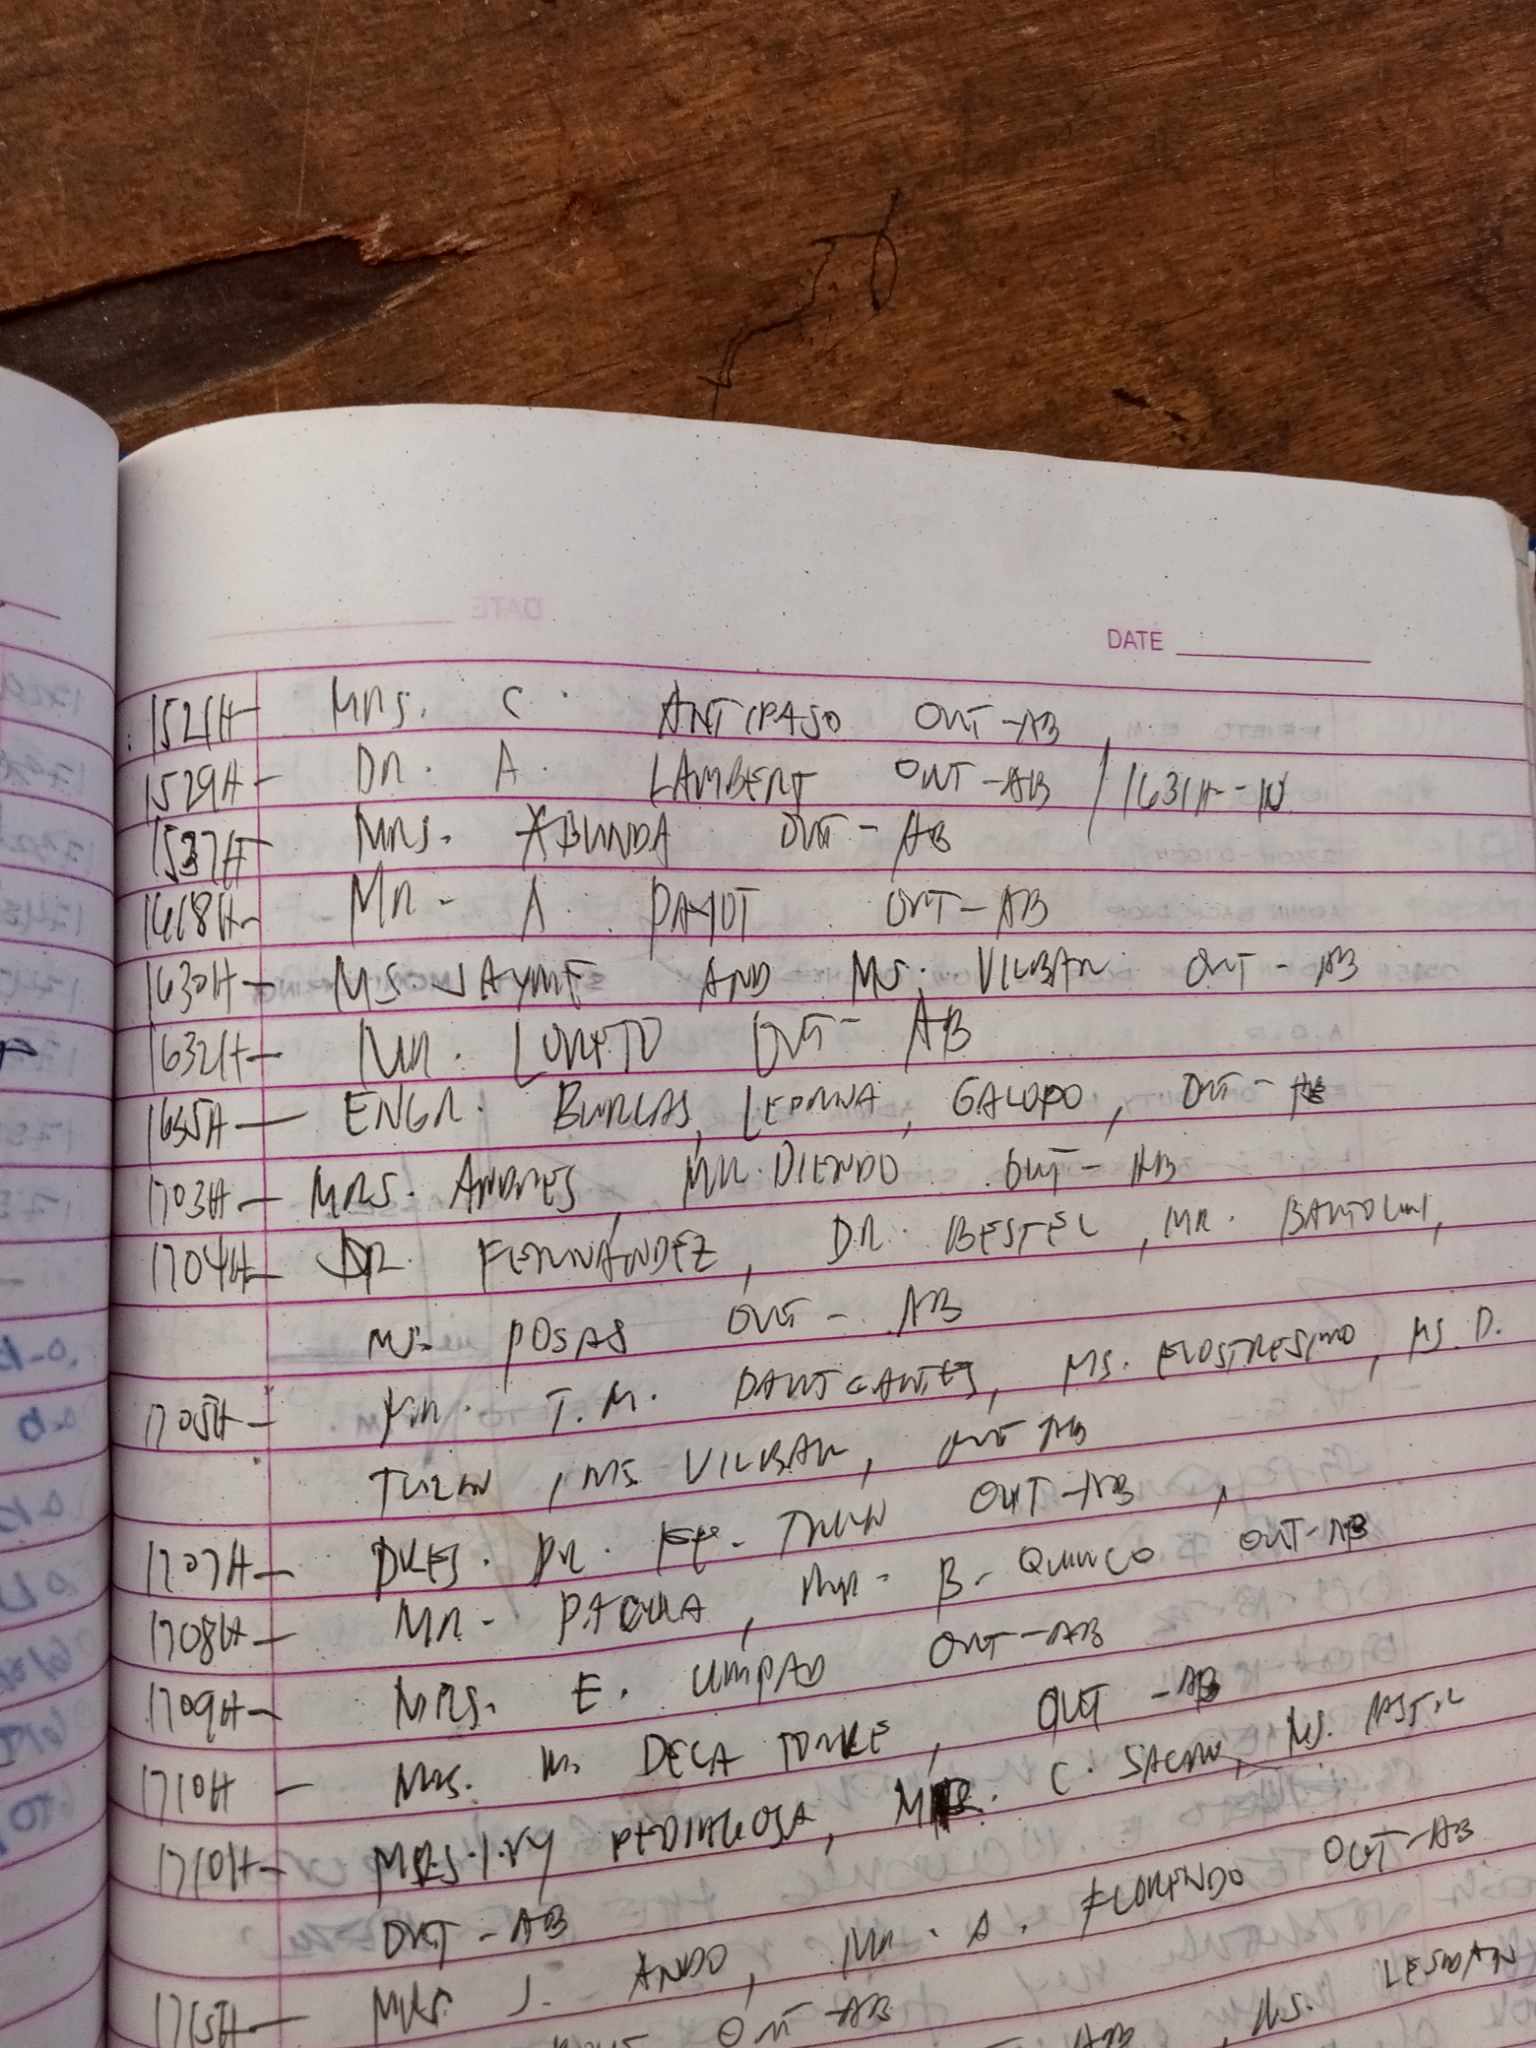 DATE
1521H- MRS. C. ANTIPASO OUT-AB
1529H- DR. A. LAMBERT OUT-AB / 1631H-IN
1537H MRS. ABUNDA OUT-AB
1618H- MR- A. PAYOT OUT-AB
1630H- MS. JAYME AND MS. VILBAR OUT-AB
1632H- MR. LORETO OUT-AB
1635H- ENGR. BURLAS, LEDRNA, GALOPO, OUT-AB
1703H- MRS. ANDRES, MR. DIENDO OUT-AB
1704H- DR. FERNANDEZ, DR. BESTEL, MR. BARTOLINI,
MS. POSAS OUT-AB
1705H- MR. T.M. DANTCANTES, MS. D.
MS. VILBAR, OUT-AB
1707H- PRES. DR. OUT-AB,
1708H- MR- PACULA, MR- B- QUINCO OUT-AB
1709H- MRS. E. UMPAD OUT-AB
1710H - MRS. M. DELA TORRE, OUT-AB
1710H- MRS. IVY PEDIAGOSA, MR. C. MS.
OUT-AB
1715H- MRS. J. ANDO, MR. A. FLORENDO OUT-AB
OUT-AB MS. LESDAN